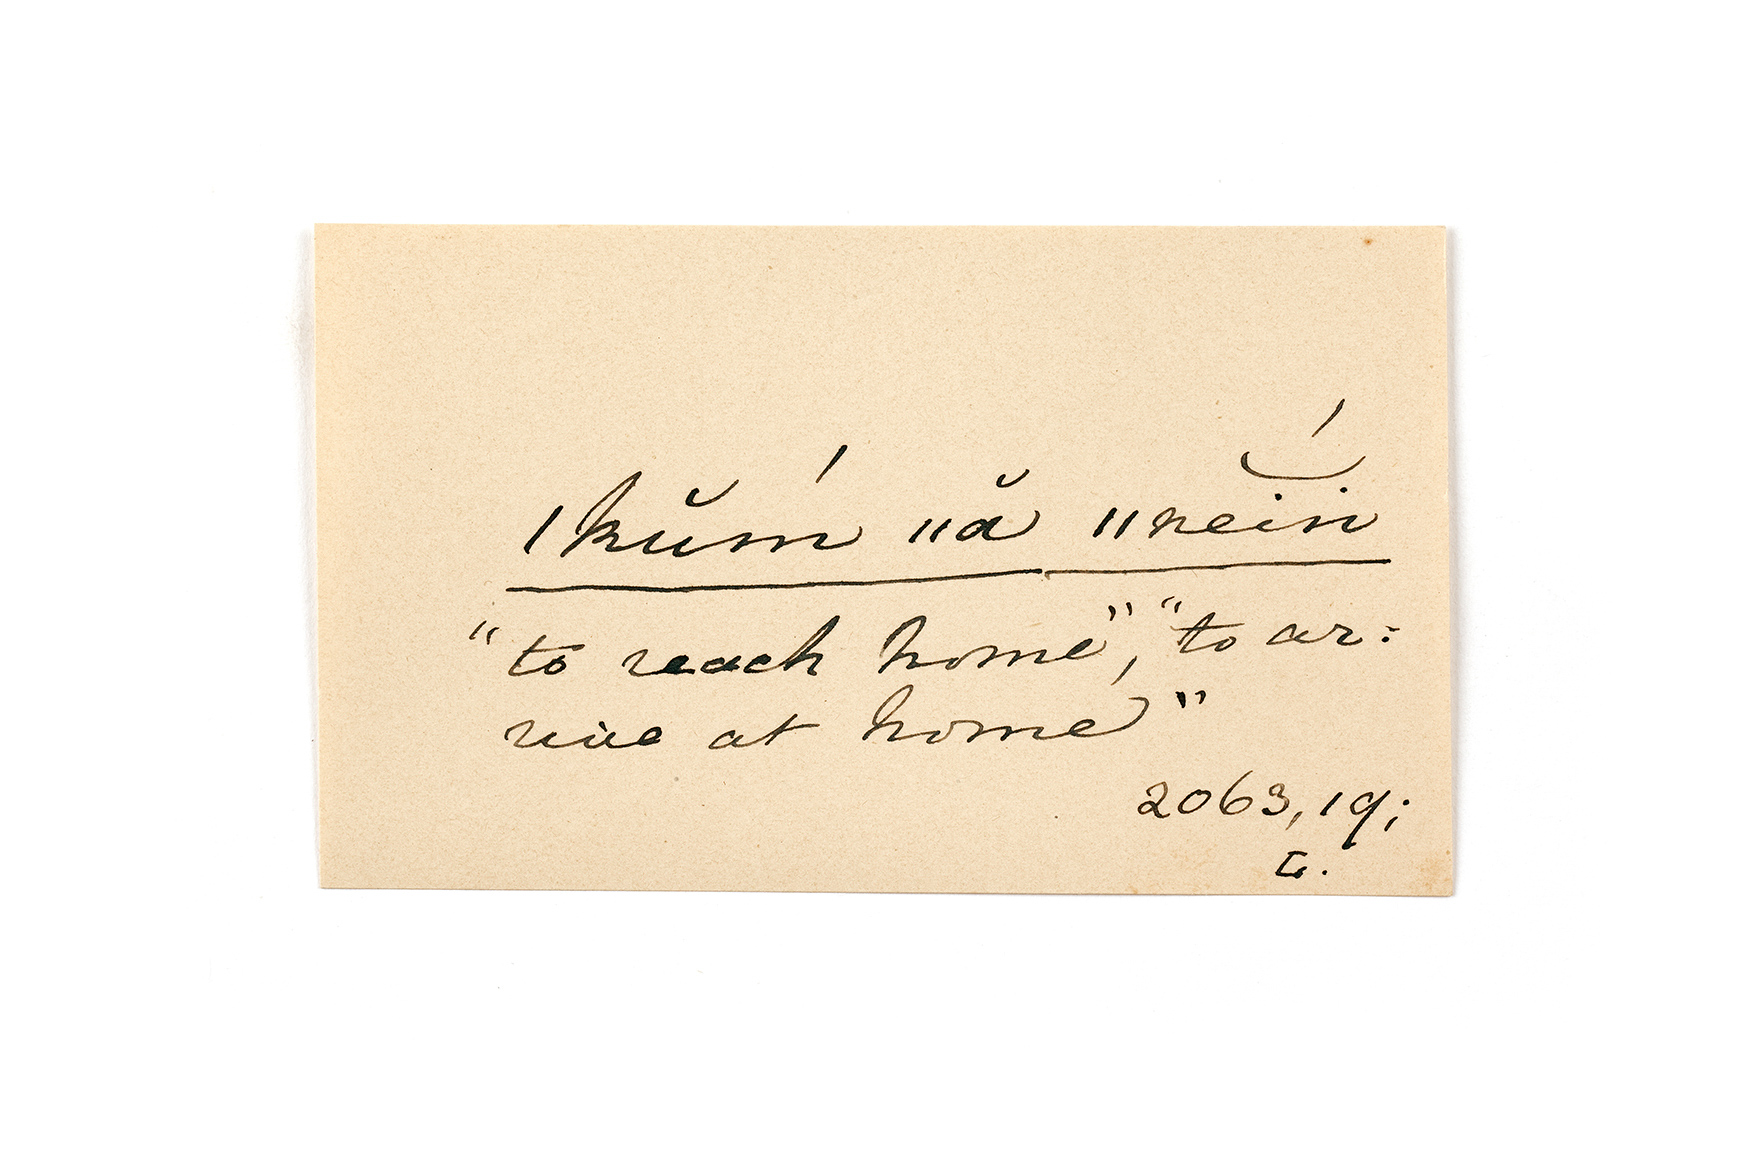 ǀkŭḿ ǁă ǁnei͝ń
"to reach home", "to ar:
rive at home"
2063, 19;
L.